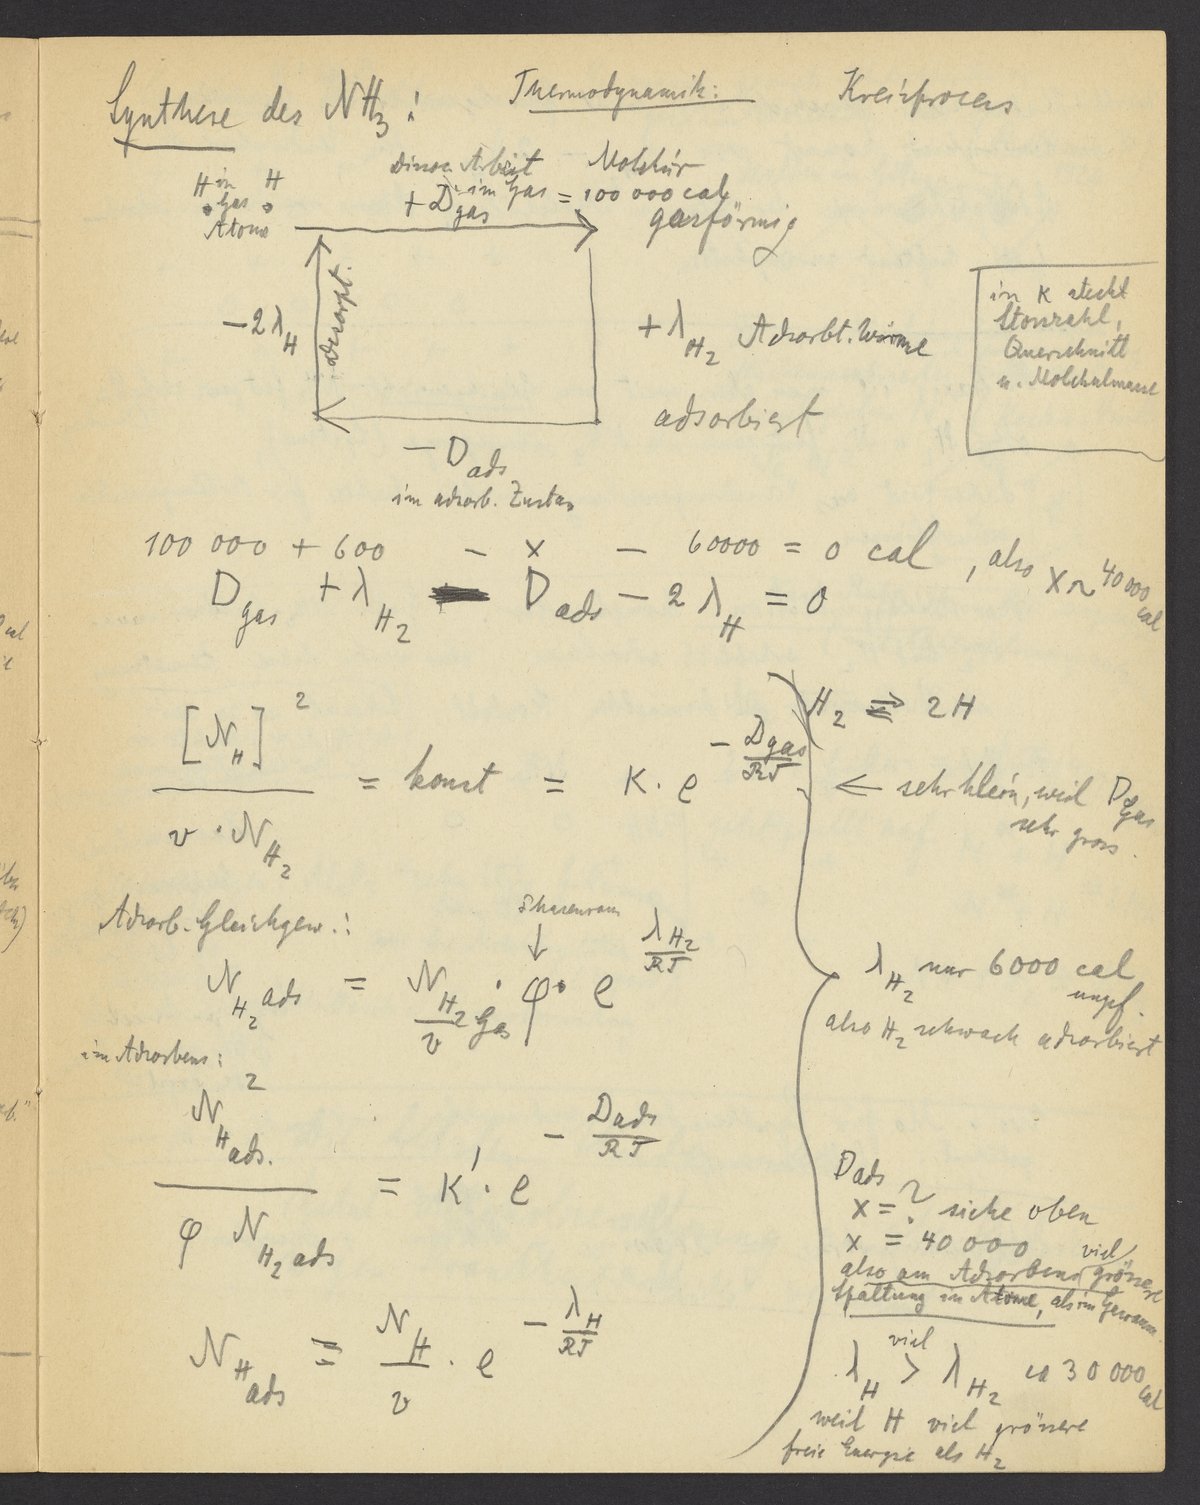 Synthese des NH3:
Thermodynamik:
Kreisprocess
H in H
Gas
Atome
Dissoc Arbeit
im Gas
+ D gas = 100 000 cal
Molekür
gasförmig
- 2 λ H
Desorpt.
+ λ H2 Adsorbt. Wärme
adsorbiert
- D ads
im adsorb. Zustan
in K steckt
Stosszahl,
Querschnitt
u. Molekulmasse
100 000 + 600 - x - 60000 = 0 cal, also x ~ 40 000 cal
D gas + λ H2 D ads - 2 λ H = 0
[N H]² / v · N H2 = konst = K · e^(- D gas / RT)
H2 ⇌ 2H
← sehr klein, weil D Gas
sehr gross.
Adsorb. Gleichgew.:
Phasenraum
↓
N H2 ads = N H2 Gas / v · φ · e^(λ H2 / RT)
λ H2 nur 6000 cal
ungf.
also H2 schwach adsorbiert
im Adsorbens:
N² H ads. / φ N H2 ads = K' · e^(- D ads / RT)
D ads
x = ? siehe oben
x = 40 000
also am Adsorbens viel grössere
Spaltung in Atome, als im Gasraum.
N H ads = N H / v · e^(- λ H / RT)
λ H viel > λ H2 ca 30 000 cal
weil H viel grössere
freie Energie als H2